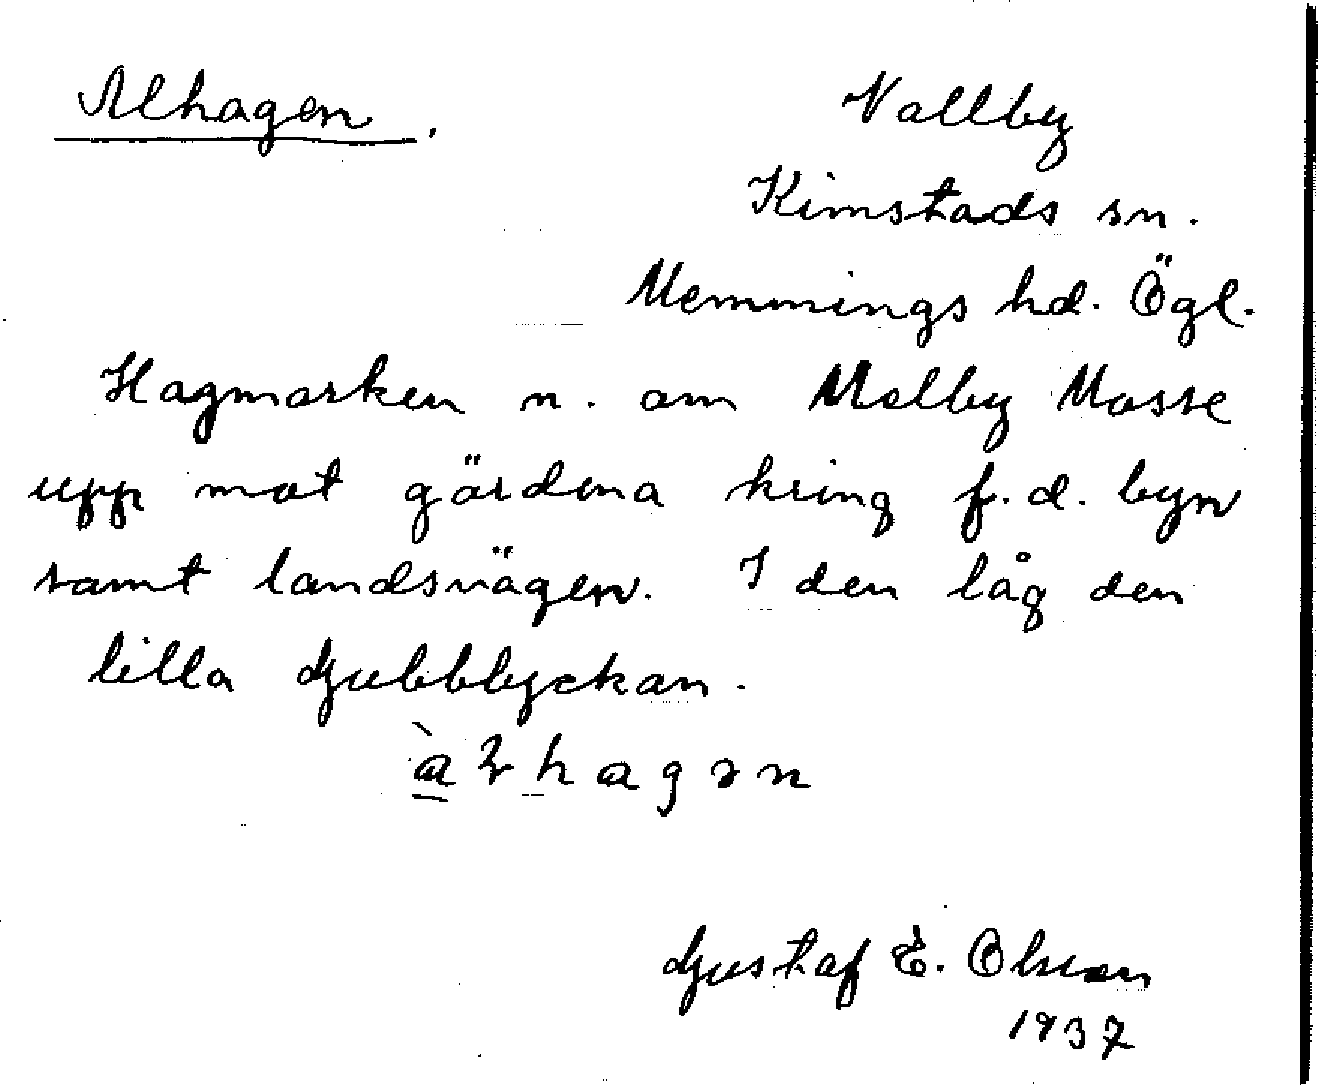 Alhagen.
Vallby
Kimstads sn.
Memmings hd. Ögl.
Hagmarken n. om Melby Mosse
upp mot gärdena kring f.d. byn
samt landsvägen. I den låg den
lilla Gubblyckan.
Gustaf E. Olsson
1937